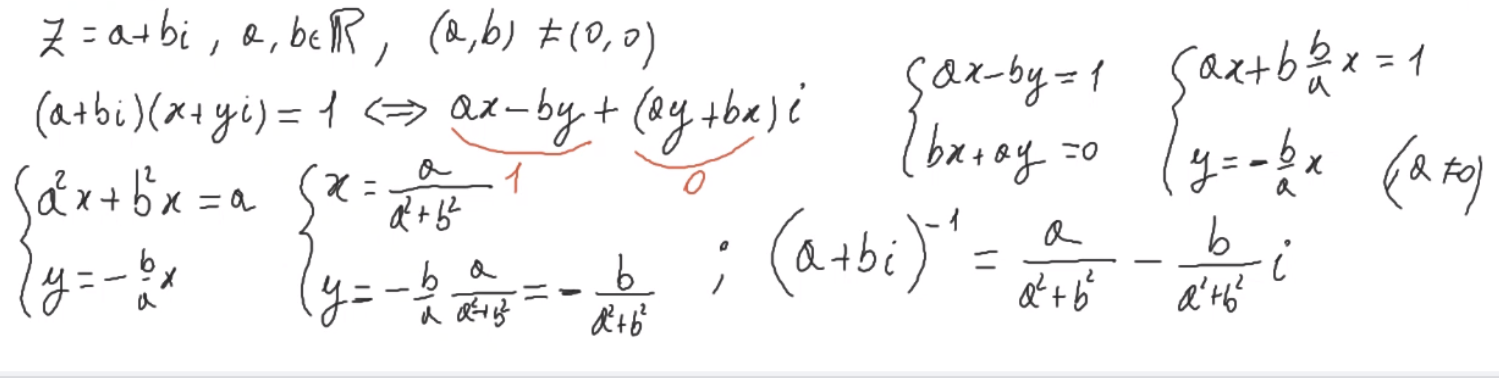 z = a+bi , a, b∈ℝ, (a,b) ≠ (0,0)
(a+bi)(x+yi) = 1 ⟺ ax-by + (ay+bx) i
1 0
{ax-by = 1
bx+ay = 0
{ax+b b/a x = 1
y = - b/a x (a ≠0)
{a²x+b²x = a
y = - b/a x
{x = a/(a²+b²)
y = - b/a a/(a²+b²) = - b/(a²+b²)
; (a+bi)⁻¹ = a/(a²+b²) - b/(a²+b²) i